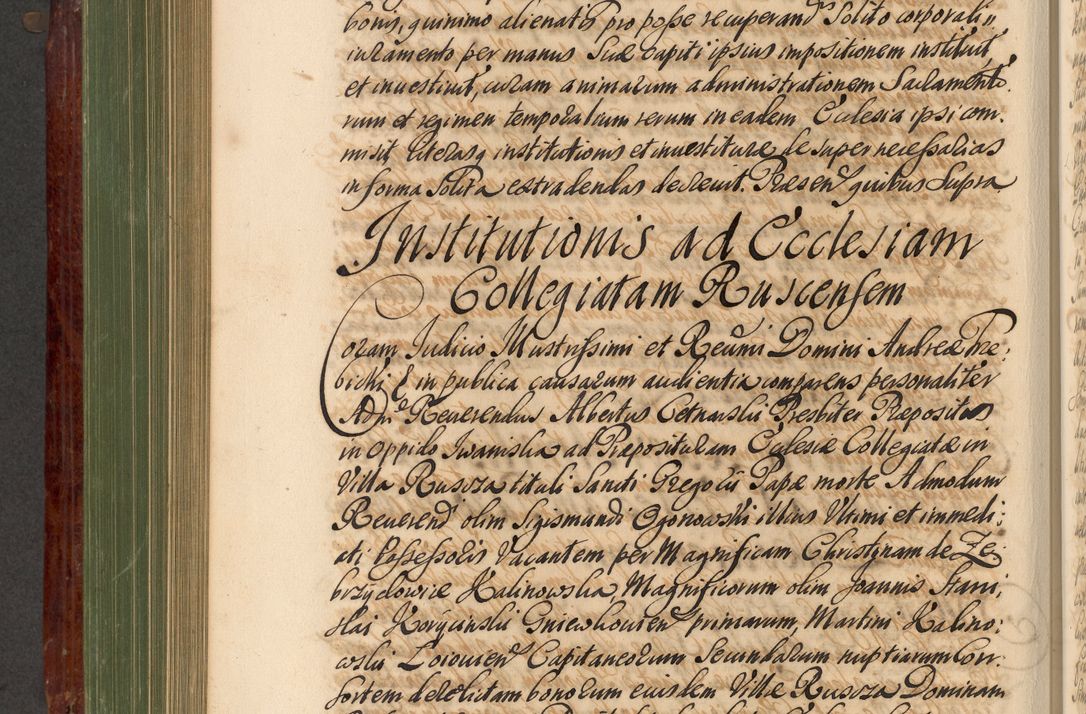 bonis, quinimo alienatis pro posse recuperand. Solito corporali
iuramento per manus Suæ capiti ipsius impositionem instituit,
et inuestiuit, curam animarum administrationem Sacramento
rum et regimen temporalium rerum in eadem Ecclesia ipsi com.
misit Literasq institutionis et inuestituræ de super necessarias
in forma Solita extradendas decreuit. Præsen quibus Supra
Institutionis ad Ecclesiam
Collegiatam Ruscensem
Coram Judicio Illustrissimi et Reumi Domini Andreæ Tre:
bicki & in publica causarum audientia comparens personaliter
Adm Reuerendus Albertus Cetnarski Presbiter Præpositus
in Oppido Iwaniska ad Præposituram Ecclesiæ Collegiatæ in
Villa Ruscza tituli Sancti Gregorii Papæ morte Admodum
Reuerend olim Sigismundi Ogonowski illius Vltimi et immedi:
ati Possessoris Vacantem per Magnificam Christinam de Ze:
brzydowice Kalinowska, Magnificorum olim Joannis Stani:
slai Korycinski Gniewkouien primarum, Martini Kalino:
wski Loiouien Capitaneorum Secundarum nuptiarum Con:
sortem derelictam bonorum eiusdem Villæ Ruscza Dominam